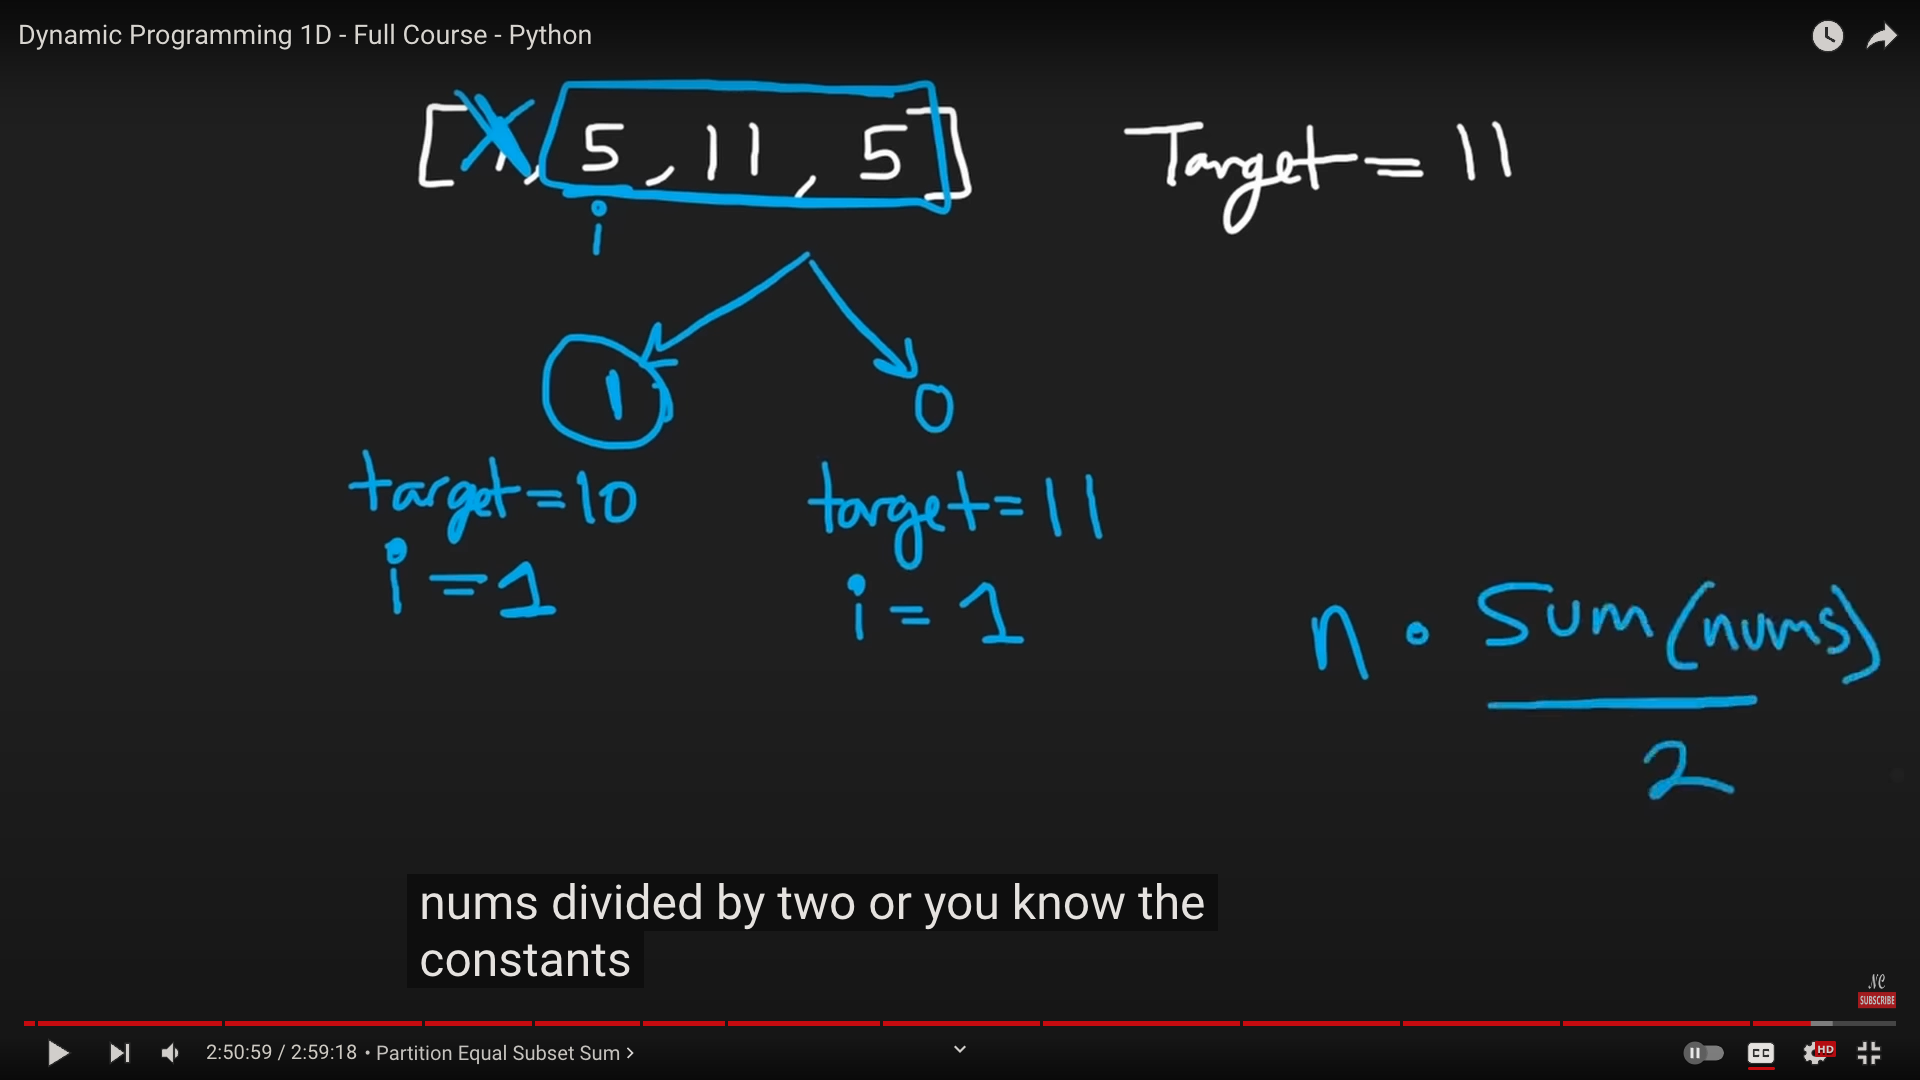 Dynamic Programming 1D - Full Course - Python
[1, 5, 11, 5] Target = 11
i
1 0
target = 10 target = 11
i = 1 i = 1
n • Sum(nums)
2
nums divided by two or you know the
constants
NC
SUBSCRIBE
2:50:59 / 2:59:18 • Partition Equal Subset Sum >
CC HD